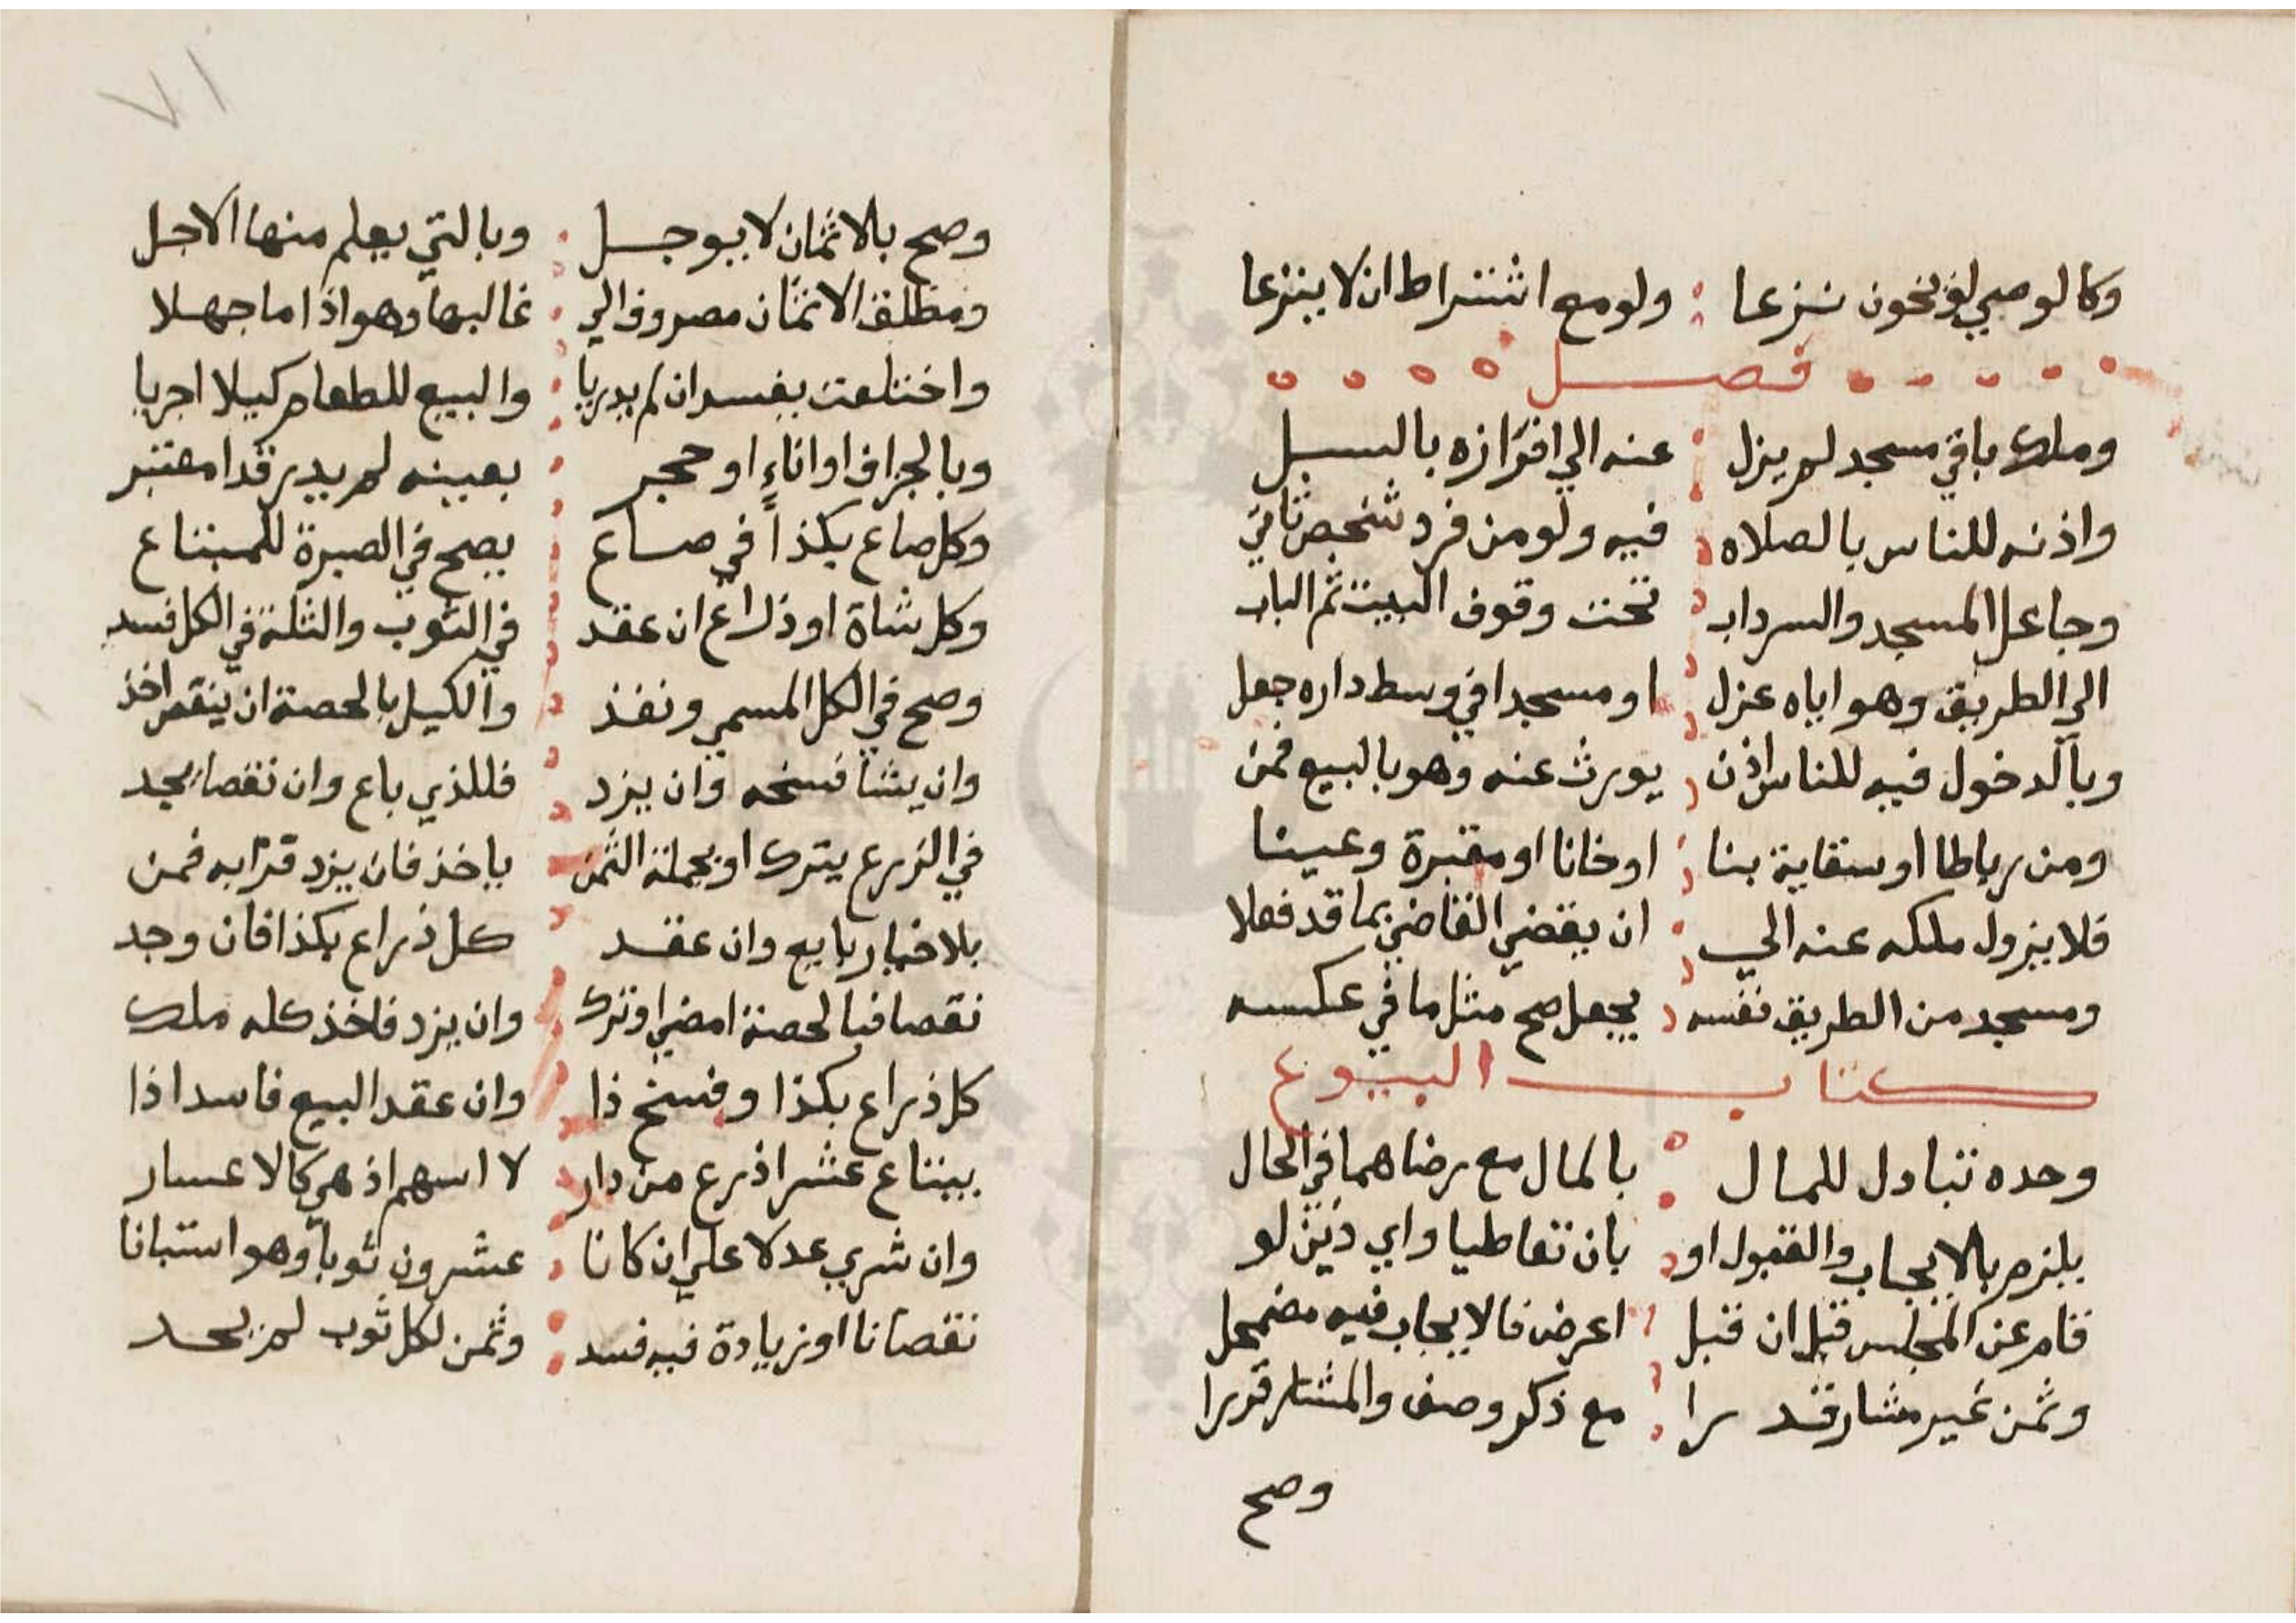 وكالوصي لو يخون نزعا ولو مع اشتراط ان لا ينزعا
فصل
وملك باقي مسجد لم يزل عنه الي افرازه بالسبل
واذنه للناس بالصلاه فيه ولو من فرد شخص ثاني
وجاعل المسجد والسرداب تحت وقوف البيت ثم الباب
الي الطريق وهو اياه عزل او مسجدا في وسط داره جعل
وبالدخول فيه للناس اذن يورث عنه وهو بالبيع قمن
ومن رباطا او سقاية بنا او خانا او مقبرة وعينا
فلا يزول ملكه عنه الي ان يقضي القاضي بما قد فعلا
ومسجد من الطريق نفسه يجعل صح مثل ما في عكسه
كتاب البيوع
وحده تبادل للمال بالمال مع رضاهما في الحال
يلزم بالايجاب والقبول او بان تعاطيا واي ذين لو
قام عن المجلس قبل ان قبل اعرض فالايجاب فيه مضمحل
وثمن غير مشار قدرا مع ذكر وصف والمشار قررا
وصح
٧١
وصح بالاثمان لا بيوجل وبالتي يعلم منها الاجل
ومطلق الاثمان مصروف الي غالبها وهو اذا ما جهلا
واختلفت يفسد ان لم يدريا والبيع للطعام كيلا اجريا
وبالجزاف او اناء او حجر بعينه لم يدر قدرا معتبر
وكل صاع بكذا في صاع يصح في الصبرة للمبتاع
وكل شاة او ذراع ان عقد في الثوب والثلة في الكل فسد
وصح في الكل المسمي ونفذ والكيل بالحصة ان ينقص اخذ
وان يشا فسخه وان يزد فللذي باع وان نقصا يجد
في الذرع يترك او بجملة الثمن ياخذ فان يزد قرابه قمن
بلا خيار بايع وان عقد كل ذراع بكذا فان وجد
نقصا فبالحصة امضي او ترك وان يزد فاخذ كله ملك
كل ذراع بكذا وفسخ ذا وان عقد البيع فاسدا اذا
يبتاع عشر اذرع من دار لا اسهم اذ هي كالاعسار
وان شري عدلا علي ان كانا عشرون ثوبا وهو استبانا
نقصانا او زيادة فيه فسد وثمن لكل ثوب لم يحد